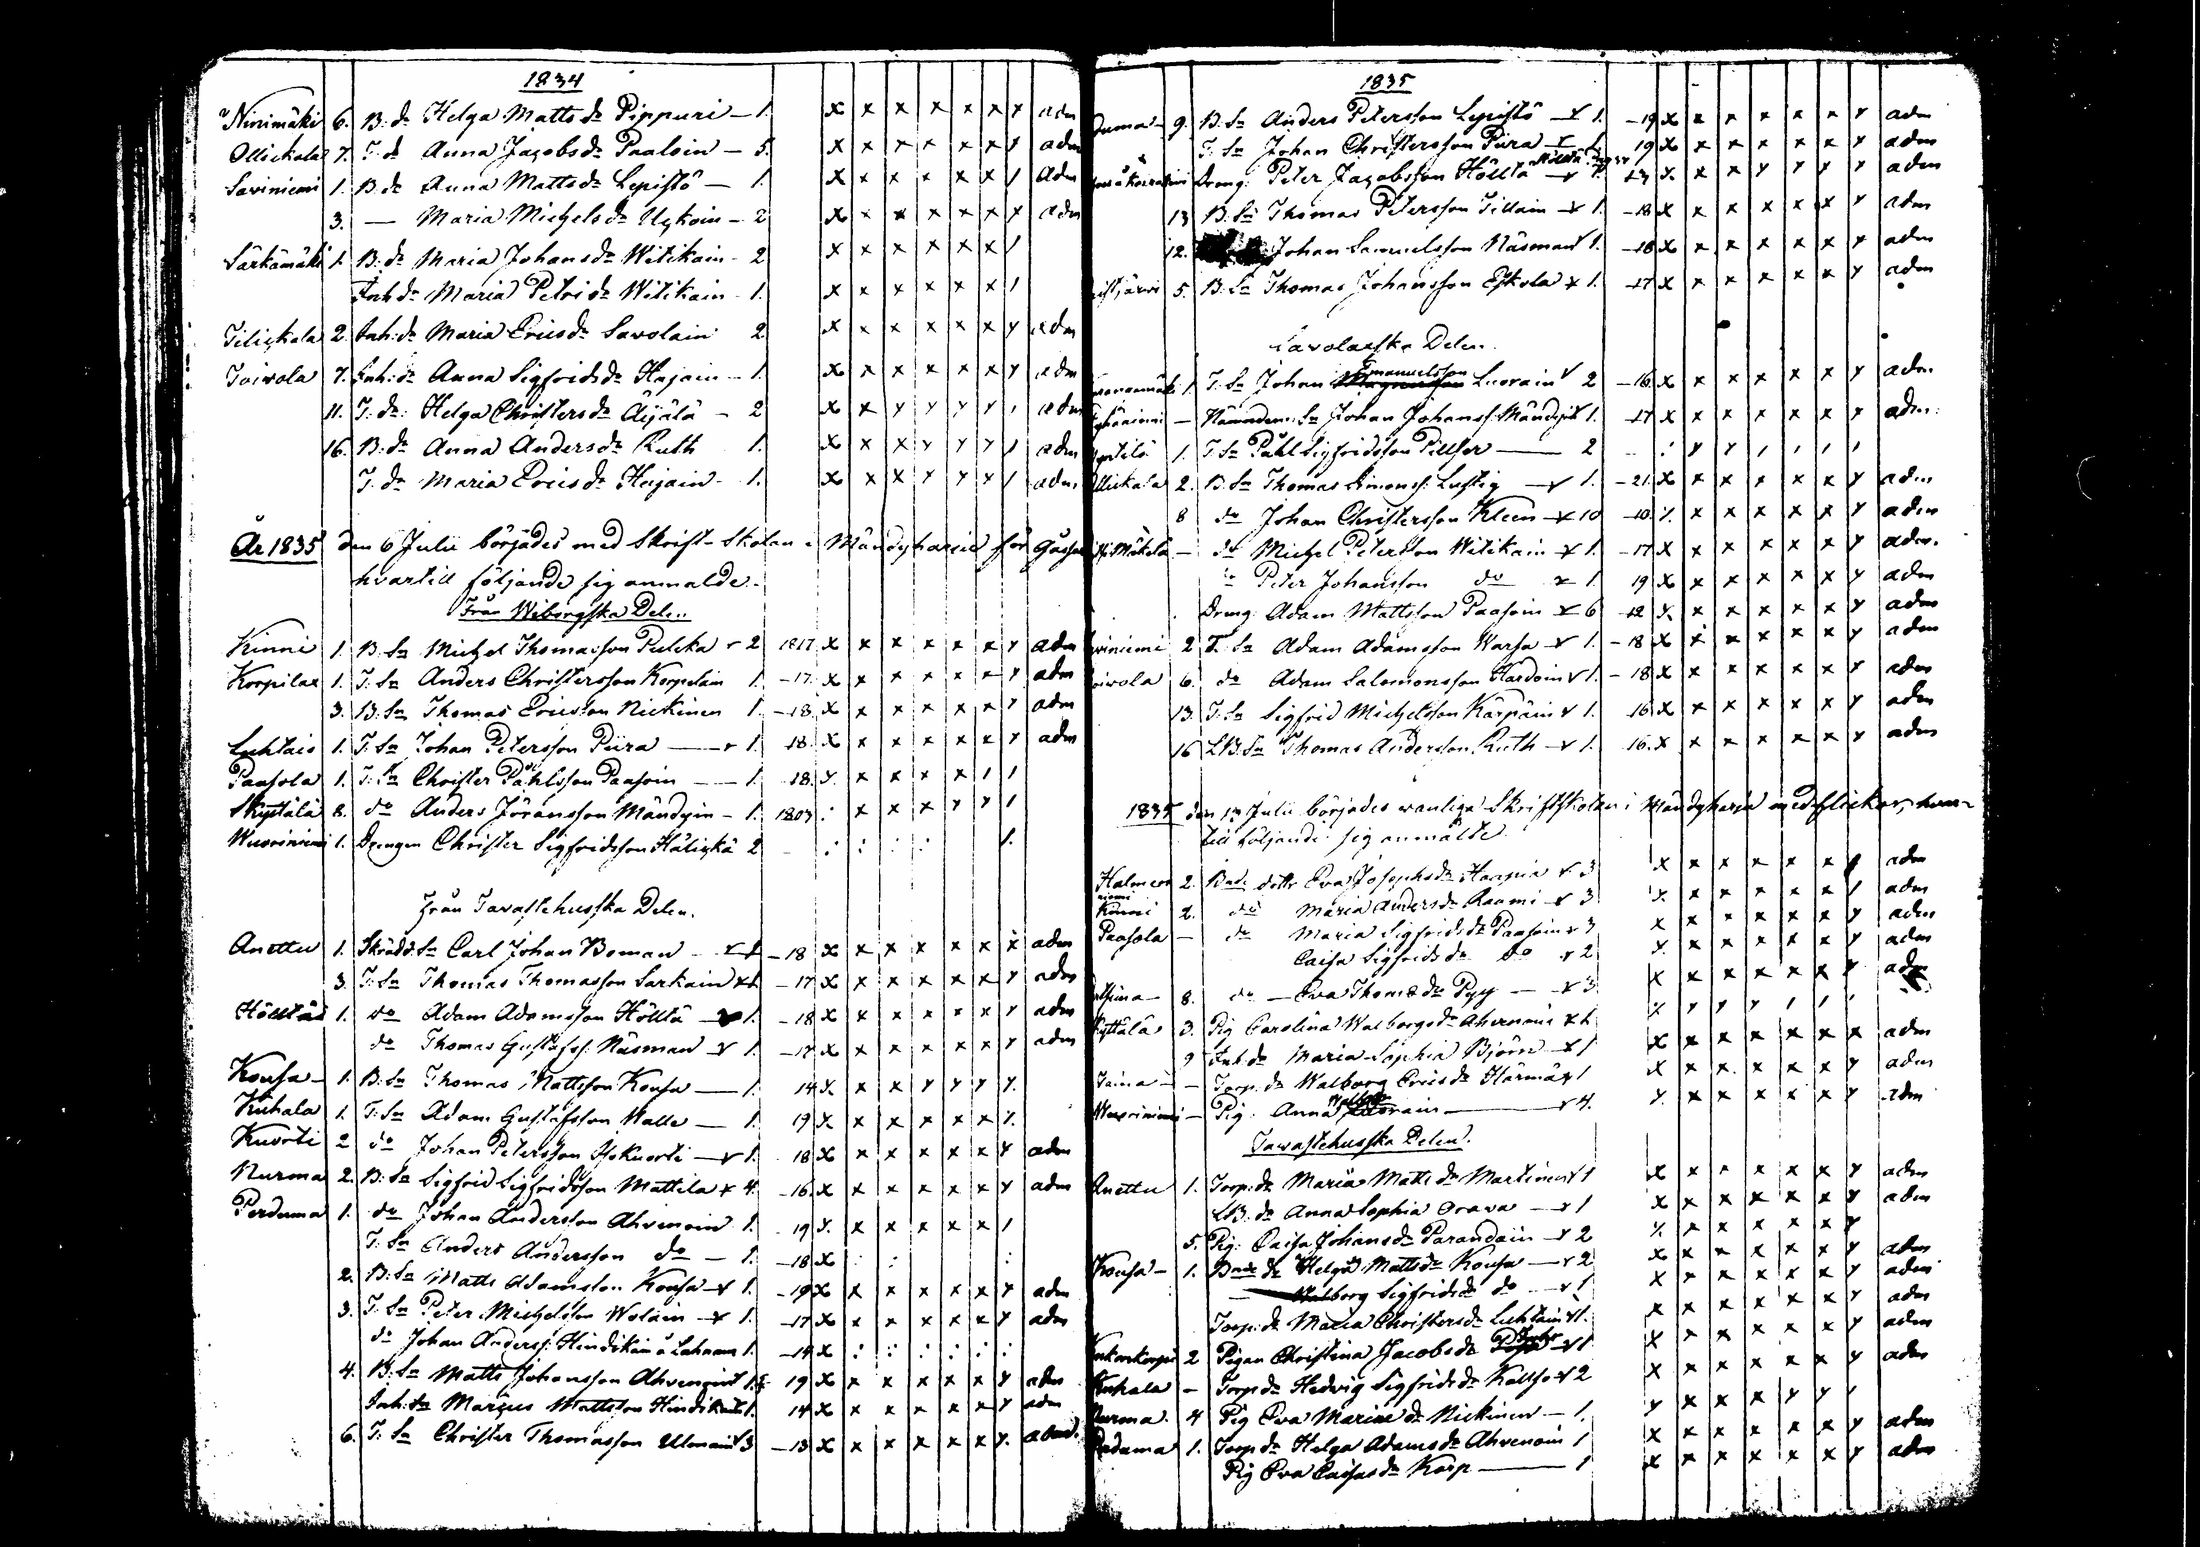 1834
Ninimäki 6. B: dr Helga Matts dr Pippuri — 1. x x x x x x y adm
Ollickala 7. T: dr Anna Jacobs dr Paaloin — 5. x x x x x x y adm
Saviniemi 1. B. dr Anna Matts dr Lepistö — 1. x x x x x x / adm
3. — Maria Michels dr Uykoin — 2 x x x x x x y adm
Särkämäki 1. B: dr Maria Johans dr Witikain — 2 x x x x x x /
Inh dr Maria Petri dr Witikain — 1. x x x x x x /
Tilickala 2. Inh: dr Maria Erics dr Savolain 2 x x x x x x y adm
Toivola 7. Inh: dr Anna Sigfrids dr Hajain — 1. x x x x x x y adm
11. T: dr: Helga Christers dr Äijälä — 2 x x y y y y / adm
16. B: dr Anna Anders dr Ruth 1. x x x y y y / adm
T: dr Maria Erics dr Hajain — 1. x x x y y y / adm
År 1835 den 6 Julii börjades med Skrift-Skolan i Mändyharju för Gåssar
hvartill följande sig anmälde.
Från Wiborgska Delen
Kinni 1. B: Sn Michel Thomasson Pulcka r 2 1817 x x x x x x y adm
Korpilax 1. T: Sn Anders Christersson Korpelain 1. — 17. x x x x x x y adm
3. B: Sn Thomas Ericsson Nickinen 1. — 18. x x x x x x y adm
Luhtais 1. T: Sn Johan Petersson Piira — r 1. 18. x x x x x x y adm
Paasola 1. T: Sn Christer Påhlsson Paasoin — 1. 18. y. x x x x / /
Skyttälä 8. do Anders Jöransson Mändyin — 1. 1803 : x x x y y /
Wuoriniemi 1. Drengen Christer Sigfridsson Hälickä 2
Från Tavastehusska Delen.
Anettu 1. Skrädd. Sn Carl Johan Boman — r 1 — 18 x x x x x x x adm
3. T: Sn Thomas Thomasson Sarkain x 1. — 17 x x x x x x y adm
Hölltäs 1. do Adam Adamsson Hölltä — 1. — 18 x x x x x x y adm
do Thomas Gustafss: Näsman r 1. — 17 x x x x x x y adm
Kousa — 1. B: Sn Thomas Mattsson Kousa — 1. 14 y. x x y y y y.
Kuhala 1. T: Sn Adam Gustafsson Walle — 1. 19 y. x x x x x y.
Kuorti 2 do Johan Petersson Isokuorti — r 1. 18 x x x x x x y adm
Nurma 2. B: Sn Sigfrid Sigfridsson Mattila x 4. — 16. x x x x x x y adm
Perduma 1. do Johan Andersson Ahvenain 1. 19 y. x x x x x /
T: Sn Anders Andersson do — 1. — 18 x
2. B: Sn Matts Adamsson Kousa r 1. — 19 x x x x x x y adm
3. T: Sn Peter Michelsson Wolain r 1. — 17 x x x x x x y adm
do Johan Anderss: Hindikain å Lahnam 1. — 14 x
4. B: Sn Matts Johansson Ahvenain 1. 19 x x x x x x y adm
Inh: Sn Marcus Mattsson Hindikain 1. 14 x x x x x x y adm
6. T: Sn Christer Thomasson Ulmain 3 — 13 x x x x x x y.
1835
9. B: Sn Anders Petersson Lepistö — r 1. — 19 x x x x x x y adm
T: Sn Johan Christersson Piira — r 1. 19 x x x x x x y adm
Dreng: Peter Jacobsson Hölltä — r y. x x y y y y adm
13 B: Sn Thomas Petersson Tillain r 1. — 18 x x x x x x y adm
12. Johan Samuelsson Näsman r 1. — 18 x x x x x x y adm
5. B: Sn Thomas Johansson Eskola x 1. — 17 x x x x x x y adm
Savolaxska Delen.
1. T: Sn Johan Emanuelsson Luorain r 2 — 16 x x x x x x y adm
— Nämndem: Sn Johan Johanss: Mändyin 1. — 17 x x x x x x y adm:
1. T. Sn Påhl Sigfridsson Pillfer — 2 : y y / / / /
Ollickala 2. B: Sn Thomas Simonss: Lustig — r 1. — 21. x x x x x x y adm
8 do Johan Christersson Kleen r 10 — 10. y. x x x x x y adm
Mäkelä — do Michel Petersson Witikain r 1. — 17 x x x x x x y adm.
do Peter Johansson do x 1. 19 x x x x x x y adm
Dreng: Adam Mattsson Paasoin r 6 — 12 y. x x x x x y adm
2 T. Sn Adam Adamsson Warsa r 1. — 18 x x x x x x y adm
6. do Adam Salomonsson Hardoin r 1. — 18 x x x x x x y adm
13. T: Sn Sigfrid Michelsson Kärpäin r 1. 16 x x x x x x y adm
16 LB: Sn Thomas Andersson Ruth — r 1. 16. x x x x x x y adm
1835 den 13 Julii börjades vanliga Skriftskolan i Mändyharju med flickor, hvar-
till följande sig anmälte.
2. Bnd: dottr Eva Josephs dr Haapia r 3 x x x x x x adm
Kinni 2. do Maria Anders dr Raami r 3 y. x x x x x / adm
Paasola — do Maria Sigfrids dr Paasoin r 3 x x x x x x y adm
Caisa Sigfrids dr do r 2 y. x x x x x y adm
8. do — Eva Thoms dr Pyy — r 3 x x x x x x y adm
3. Pig Carolina Walborgs dr Ahvenain x 1. y y y y / / /
9 Inh: dr Maria Sophia Björn — x 1 x x x x x x x adm
— Torp: dr Walborg Erics dr Härmä r 1 x x x x x x y adm
— Pig: Anna — r 4. y. x x x x x y adm
Tavastehusska Delen.
Anettu 1. Torp: dr Maria Matts dr Martinen r 1 x x x x x x y adm
LB: dr Anna Sophia Orava — r 1 x x x x x x y adm
5. Pig: Caisa Johans dr Parandain r 2 y. x x x x x y
Kousa — 1. Bnd: dr Helga Matts dr Kousa — r 2 x x x x x x y adm
Walborg Sigfrids dr do — r 1 x x x x x x y adm
Torp: dr Maria Christers dr Luhtain r 1. x x x x x x y adm
2 Pigan Christina Jacobs dr r 1 x x x x x x y adm
Kuhala — Torp dr Hedvig Sigfrids dr Kallso r 2 x x x x x x y adm
Nurma. 4 Pig Eva Maria dr Nickinen — 1. y x x x y y /
Perduma 1. Torp dr Helga Adams dr Ahvenain 1 x x x x x x y adm
Pig Eva Caisas dr Korp — 1 x x x x x x y adm